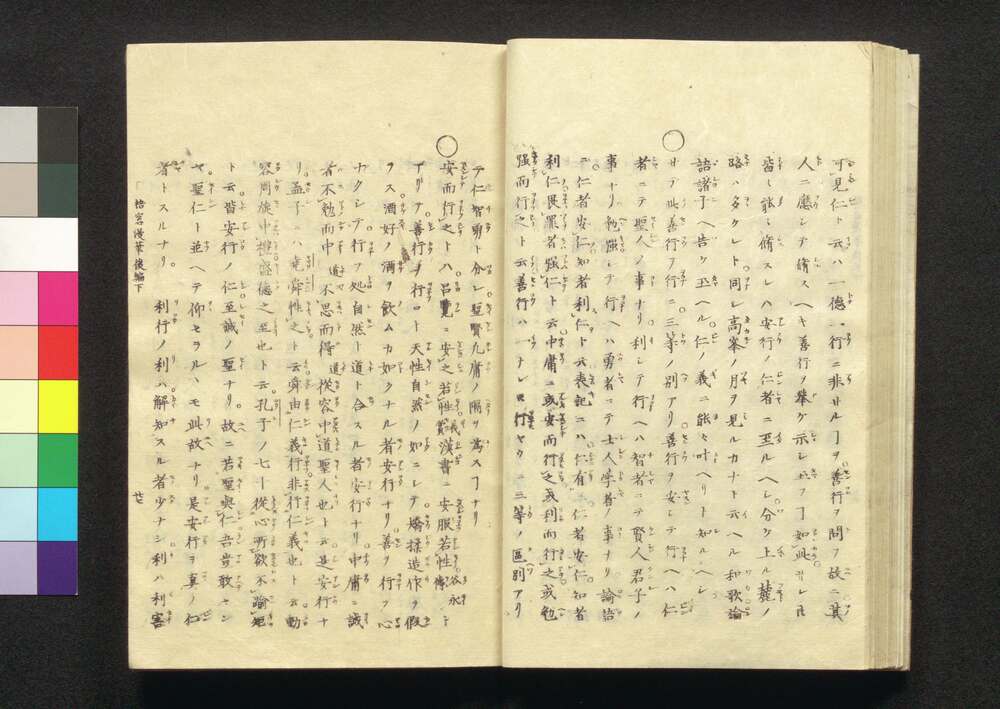 可見仁ト云ハ一德一行ニ非サルヿヲ善行ヲ問フ故ニ其
人ニ應シテ脩スヘキ善行ヲ擧ケ示シ玉フヿ如此サレ𪜈
皆能脩スレハ安行ノ仁者ニ至ルヘシ分ケ上ル麓ノ
路ハ多ケレト同シ高峯ノ月ヲ見ルカナト云ヘル和歌論
語諸子ヘ告ケ玉ヘル仁ノ義ニ能々叶ヘリト知ルヘシ
○サテ此善行ヲ行ニ三等ノ別アリ善行ヲ安シテ行ヘハ仁
者ニテ聖人ノ事ナリ利シテ行ヘハ智者ニテ賢人君子ノ
事ナリ勉強シテ行ヘハ勇者ニテ士人學者ノ事ナリ論語
ニ仁者安仁知者利仁ト云表記ニハ仁有三仁者安仁知者
利仁畏罪者強仁ト云中庸ニ或安而行之或利而行之或勉
強而行之ト云善行ハ一ナレ𪜈行ヤウニ三等ノ區別アリ
テ仁智勇ト分レ聖賢凡庸ノ隔リ爲スヿナリ
○安而行之トハ呂覽ニ安之若性義上漢書ニ安服若性谷永傳ト
アリテ善行ヲ行ヿ天性自然ノ如ニシテ矯揉造作ヲ假
ラス酒好ノ酒ヲ飲ムカ如クナル者安行ナリ善ヲ行フ心
ナクシテ行フ処自然ト道ト合スル者安行ナリ中庸ニ誠
者不勉而中道不思而得道從容中道聖人也ト云是安行ナ
リ孟子ニハ堯舜性之ト云舜由仁義行非行仁義也ト云動
容周旋中禮盛德之至也ト云孔子ノ七十從心所欲不踰矩
ト云皆安行ノ仁至誠ノ聖ナリ故ニ若聖與仁吾豈敢セン
ヤ聖仁ト並ヘテ仰セラルヽモ此故ナリ是安行ヲ真ノ仁
者トスルナリ 利行ノ利ハ解知スル者少ナシ利ハ利害
梧窓漫筆後編下 廿七